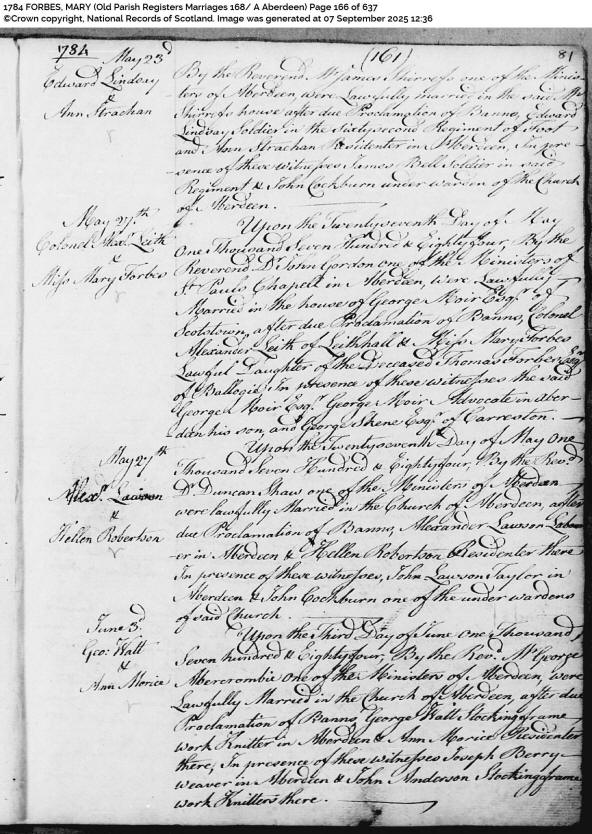 1784 FORBES, MARY (Old Parish Registers Marriages 168/ A Aberdeen) Page 166 of 637
©Crown copyright, National Records of Scotland. Image was generated at 07 September 2025 12:36
1784
(161)
81
May 23d
Edward Lindsay
&
Ann Strachan
By the Reverend Mr James Shirrefs one of the Minis-
ters of Aberdeen, were Lawfully married in the said Mr
Shirrefs house after due Proclamation of Banns, Edward
Lindsay Soldier in the Sixtysecond Regiment of Foot
and Ann Strachan Residenter in Aberdeen, In pre-
sence of these witnesses James Bell Soldier in said
Regiment & John Cockburn under warden of the Church
of Aberdeen.
May 27th
Colonel Alexr. Leith
&
Miss Mary Forbes
Upon the Twentyseventh Day of May
One Thousand Seven Hundred & Eightyfour, By the
Reverend Dr John Gordon one of the Ministers of
St Pauls Chapell in Aberdeen, were Lawfully
Married in the house of George Moir Esqr. of
Scotstown, after due Proclamation of Banns, Colonel
Alexander Leith of Leithhall & Miss Mary Forbes
Lawful Daughter of the Deceased Thomas Forbes Esqr
of Ballogie, In presence of these witnesses the said
George Moir Esqr. George Moir Advocate in Aber-
deen his son, and George Skene Esqr. of Carreston.
May 27th
Alexr. Lawson
&
Hellen Robertson
Upon the Twentyseventh Day of May One
Thousand Seven Hundred & Eightyfour, By the Revd.
Dr. Duncan Shaw one of the Ministers of Aberdeen
were lawfully Married in the Church of Aberdeen, after
due Proclamation of Banns, Alexander Lawson Labour
er in Aberdeen & Hellen Robertson Residenter there
In presence of these witnesses, John Lawson Taylor in
Aberdeen & John Cockburn one of the under wardens
of said Church.
June 3d
Geo: Watt
&
Ann Morice
Upon the Third Day of June One Thousand
Seven hundred & Eightyfour. By the Rev. Mr George
Abercrombie One of the Ministers of Aberdeen, were
Lawfully Married in the Church of Aberdeen, after due
Proclamation of Banns, George Watt Stockingframe
work Knitter in Aberdeen & Ann Morice Residenter
there, In presence of these witnesses Joseph Berry
weaver in Aberdeen & John Anderson Stockingframe
work Knitters there.